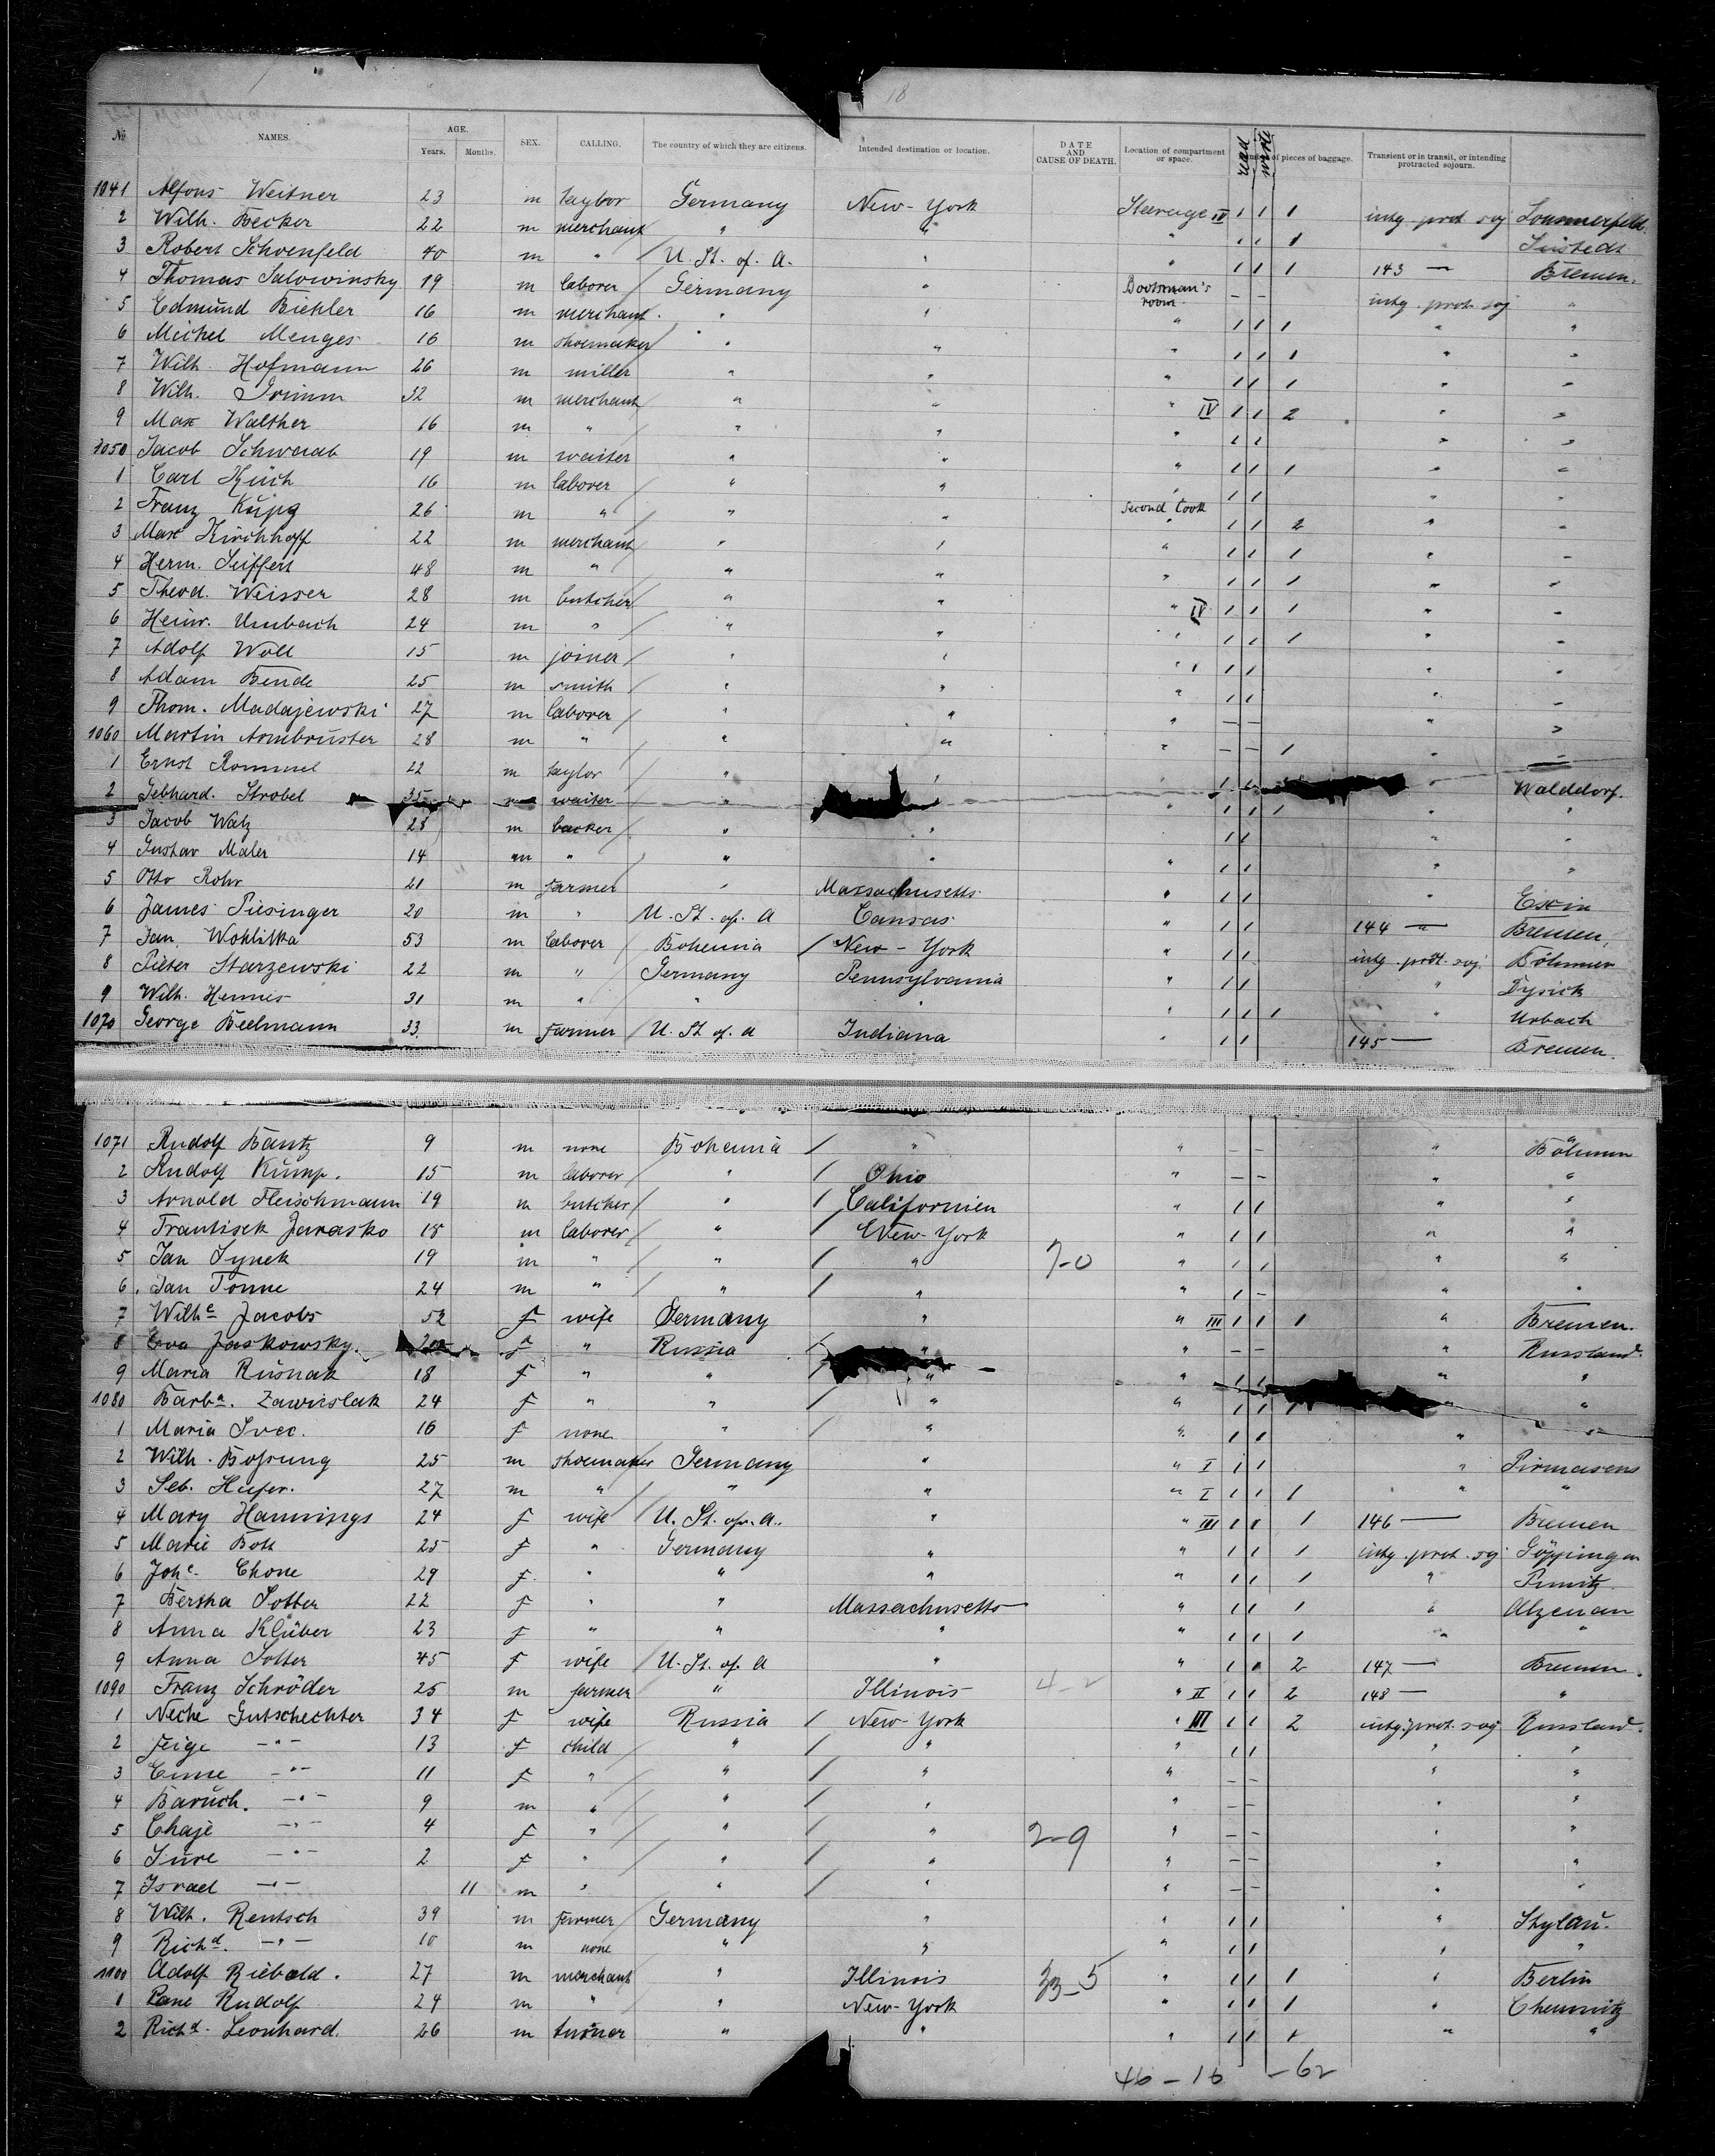 18
No. NAMES. AGE. Years. Months. SEX. CALLING. The country of which they are citizens. Intended destination or location. DATE AND CAUSE OF DEATH. Location of compartment or space. read write of pieces of baggage. Transient or in transit, or intending protracted sojourn.
1041 Alfons Weitner 23 m taylor Germany New-York Steerage IV 1 1 1 intg. prot. soj
2 Wilh. Becker 22 m merchant " " " 1 1 1 "
3 Robert Schoenfeld 40 m " U. St. of. A. " " 1 1 1 143 — Bremen.
4 Thomas Salowinsky 19 m laborer Germany " Bootsman's room — — intg. prot. soj "
5 Edmund Biehler 16 m merchant " " " 1 1 1 " "
6 Michel Menges 16 m shoemaker " " " 1 1 1 " "
7 Wilh. Hofmann 26 m miller " " " 1 1 1 " "
8 Wilh. Grimm 32 m merchant " " " IV 1 1 2 " "
9 Max Walther 16 m " " " " 1 1 " "
1050 Jacob Schwaab 19 m waiter " " " 1 1 1 " "
1 Carl Küch 16 m laborer " " " 1 1 " "
2 Franz 26 m " " " second Cook 1 1 2 " "
3 Max Kirchhoff 22 m merchant " " " 1 1 1 " "
4 Herm. Seiffert 48 m " " " " 1 1 1 " "
5 Theod. Weisser 28 m butcher " " " IV 1 1 1 " "
6 Heinr. Umbach 24 m " " " " 1 1 1 " "
7 Adolf Woll 15 m joiner " " " 1 1 " "
8 Adam Bende 25 m smith " " " 1 1 " "
9 Thom. Madajewski 27 m laborer " " " — — " "
1060 Martin Armbruster 28 m " " " " — — 1 " "
1 Ernst Rommel 22 m taylor " " " 1 1 " "
2 Gebhard. Strobel 35 m waiter " " " 1 1 1 " Walddorf.
3 Jacob Walz 28 m backer " " " 1 1 " "
4 Gustav Maler 14 m " " " " 1 1 " "
5 Otto Rohr 21 m farmer " Massachusetts " 1 1 "
6 James Piesinger 20 m " U. St. of. A Cansas " 1 1 144 — Bremen.
7 Jan. Wohlitka 53 m laborer Bohemia New-York " 1 1 intg. prot. soj. Böhmen
8 Pieter Starzewski 22 m " Germany Pennsylvania " 1 1 "
9 Wilh. Hennes 31 m " " " " 1 1 1 " Urbach
1070 George Beelmann 33 m farmer U. St. of. A Indiana " 1 1 145 — Bremen.
1071 Rudolf Bantz 9 m none Bohemia " " — — " Böhmen
2 Rudolf Kump. 15 m laborer " Ohio " — — " "
3 Arnold Fleischmann 19 m butcher " Californien " 1 1 " "
4 Frantisek Jarasko 18 m laborer " New-York " 1 1 " "
5 Jan Synek 19 m " " " 7-0 " 1 1 " "
6 Jan Tonne 24 m " " " " 1 — " "
7 Wilhe Jacobs 52 f wife Germany " " III 1 1 1 " Bremen.
8 Eva Jaskowsky. f " Russia " " — — " Russland.
9 Maria Rusnak 18 f " " " " 1 1 " "
1080 Barba. Zawieslak 24 f " " " " 1 1 1 "
1 Maria Svec. 16 f none " " " 1 1 " "
2 Wilh. Boßung 25 m shoemaker Germany " " I 1 1 " Pirmasens
3 Seb. Hufer. 27 m " " " " I 1 1 1 " "
4 Mary Hannings 24 f wife U. St. of. A. " " III 1 1 1 146 — Bremen
5 Marie Bott 25 f " Germany " " 1 1 1 intg. prot. soj. Göppingen
6 Johe. Chone 29 f " " " " 1 1 1 "
7 Bertha Sotter 22 f " " Massachusetts " 1 1 1 " Alzenau
8 Anna Klüber 23 f " " " " 1 1 1 " "
9 Anna Sotter 45 f wife U. St. of. A " " 1 1 2 147 — Bremen.
1090 Franz Schröder 25 m farmer " Illinois 4-2 " II 1 1 2 148 — "
1 Neche Gutschechter 34 f wife Russia New-York " III 1 1 2 intg. prot. soj Russland.
2 Feige —"— 13 f child " " " 1 1 " "
3 —"— 11 f " " " " — — " "
4 Baruch. —"— 9 m " " " " — — " "
5 Chaje —"— 4 f " " " 2-9 " — — " "
6 Sure —"— 2 f " " " " — — " "
7 Israel —"— 11 m " " " " — — " "
8 Wilh. Rentsch 39 m farmer Germany " " 1 1 "
9 Richd. —"— 10 m none " " " 1 1 " "
1100 Adolf Riebold. 27 m merchant " Illinois 33-5 " 1 1 1 " Berlin
1 Rudolf 24 m " " New-York " 1 1 1 " Chemnitz
2 Richd. Leonhard. 26 m turner " " " 1 1 1 " "
46 - 16 - 62